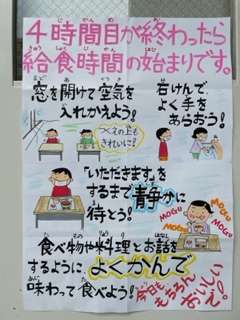 4時間目が終わったら
給食時間の始まりです。
窓を開けて空気を
入れかえよう!
石けんで
よく手を
あらおう!
つくえの上も
きれいに?
「いただきます。」を
するまで静かに
待とう!
MOGU
MOGU
MOGU
MOGU
食べ物や料理とお話を
するように、よくかんで
味わって食べよう!
今日も
もちろん
おいしい
で。